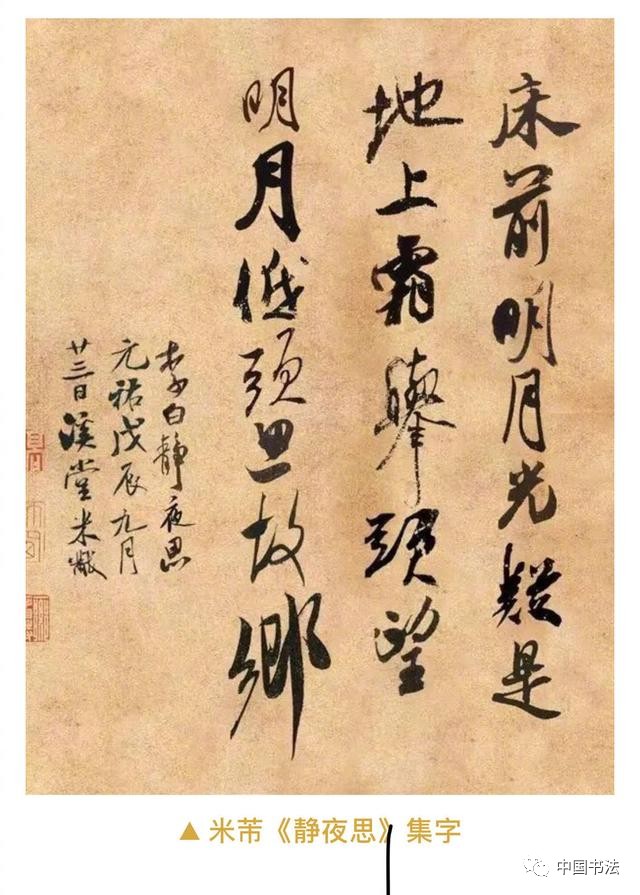 床前明月光疑是
地上霜舉頭望
明月低頭思故鄉
李白靜夜思
元祐戊辰九月
廿三日溪堂米黻
▲ 米芾《静夜思》集字
中国书法